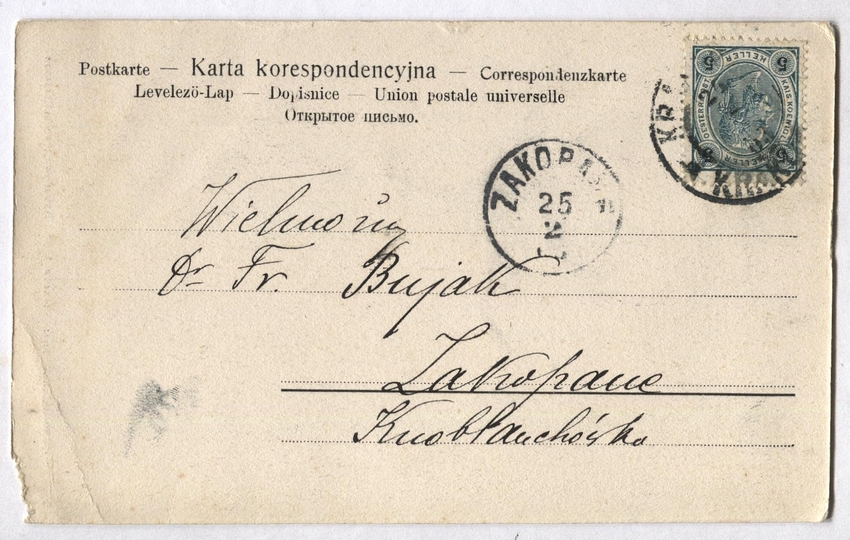 Postkarte — Karta korespondencyjna — Correspondenzkarte
Levelezö-Lap — Dopisnice — Union postale universelle
Открытое письмо.
5 5
KELLER
KRA
KRAK
ZAKOPANE
25
2
Wielmożny
Dr Fr. Bujak
Zakopane
Knoblauchówka